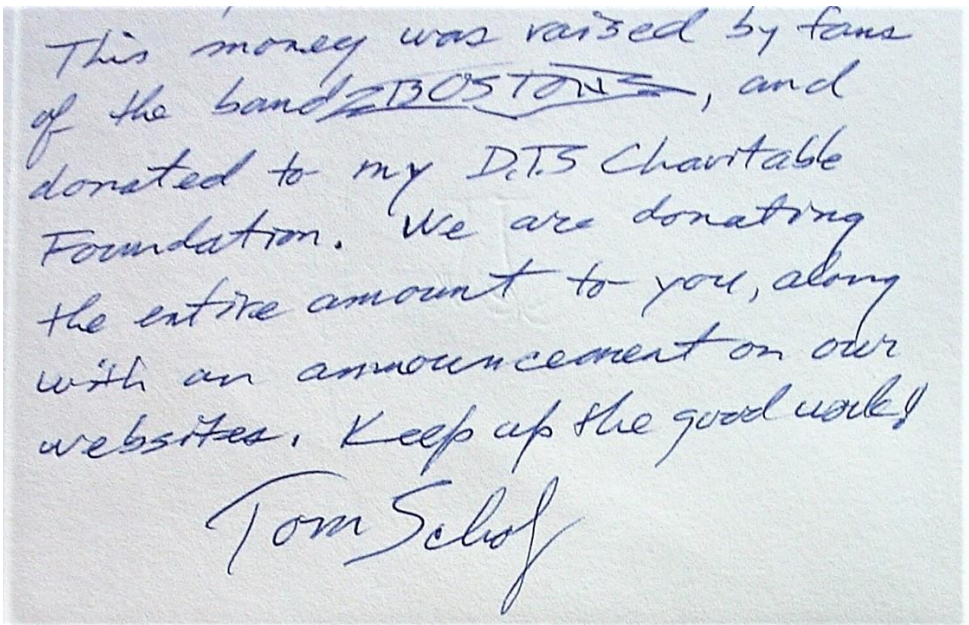 This money was raised by fans
of the band BOSTON, and
donated to my D.T.S Charitable
Foundation. We are donating
the entire amount to you, along
with an announcement on our
websites. Keep up the good work!
Tom Scholz